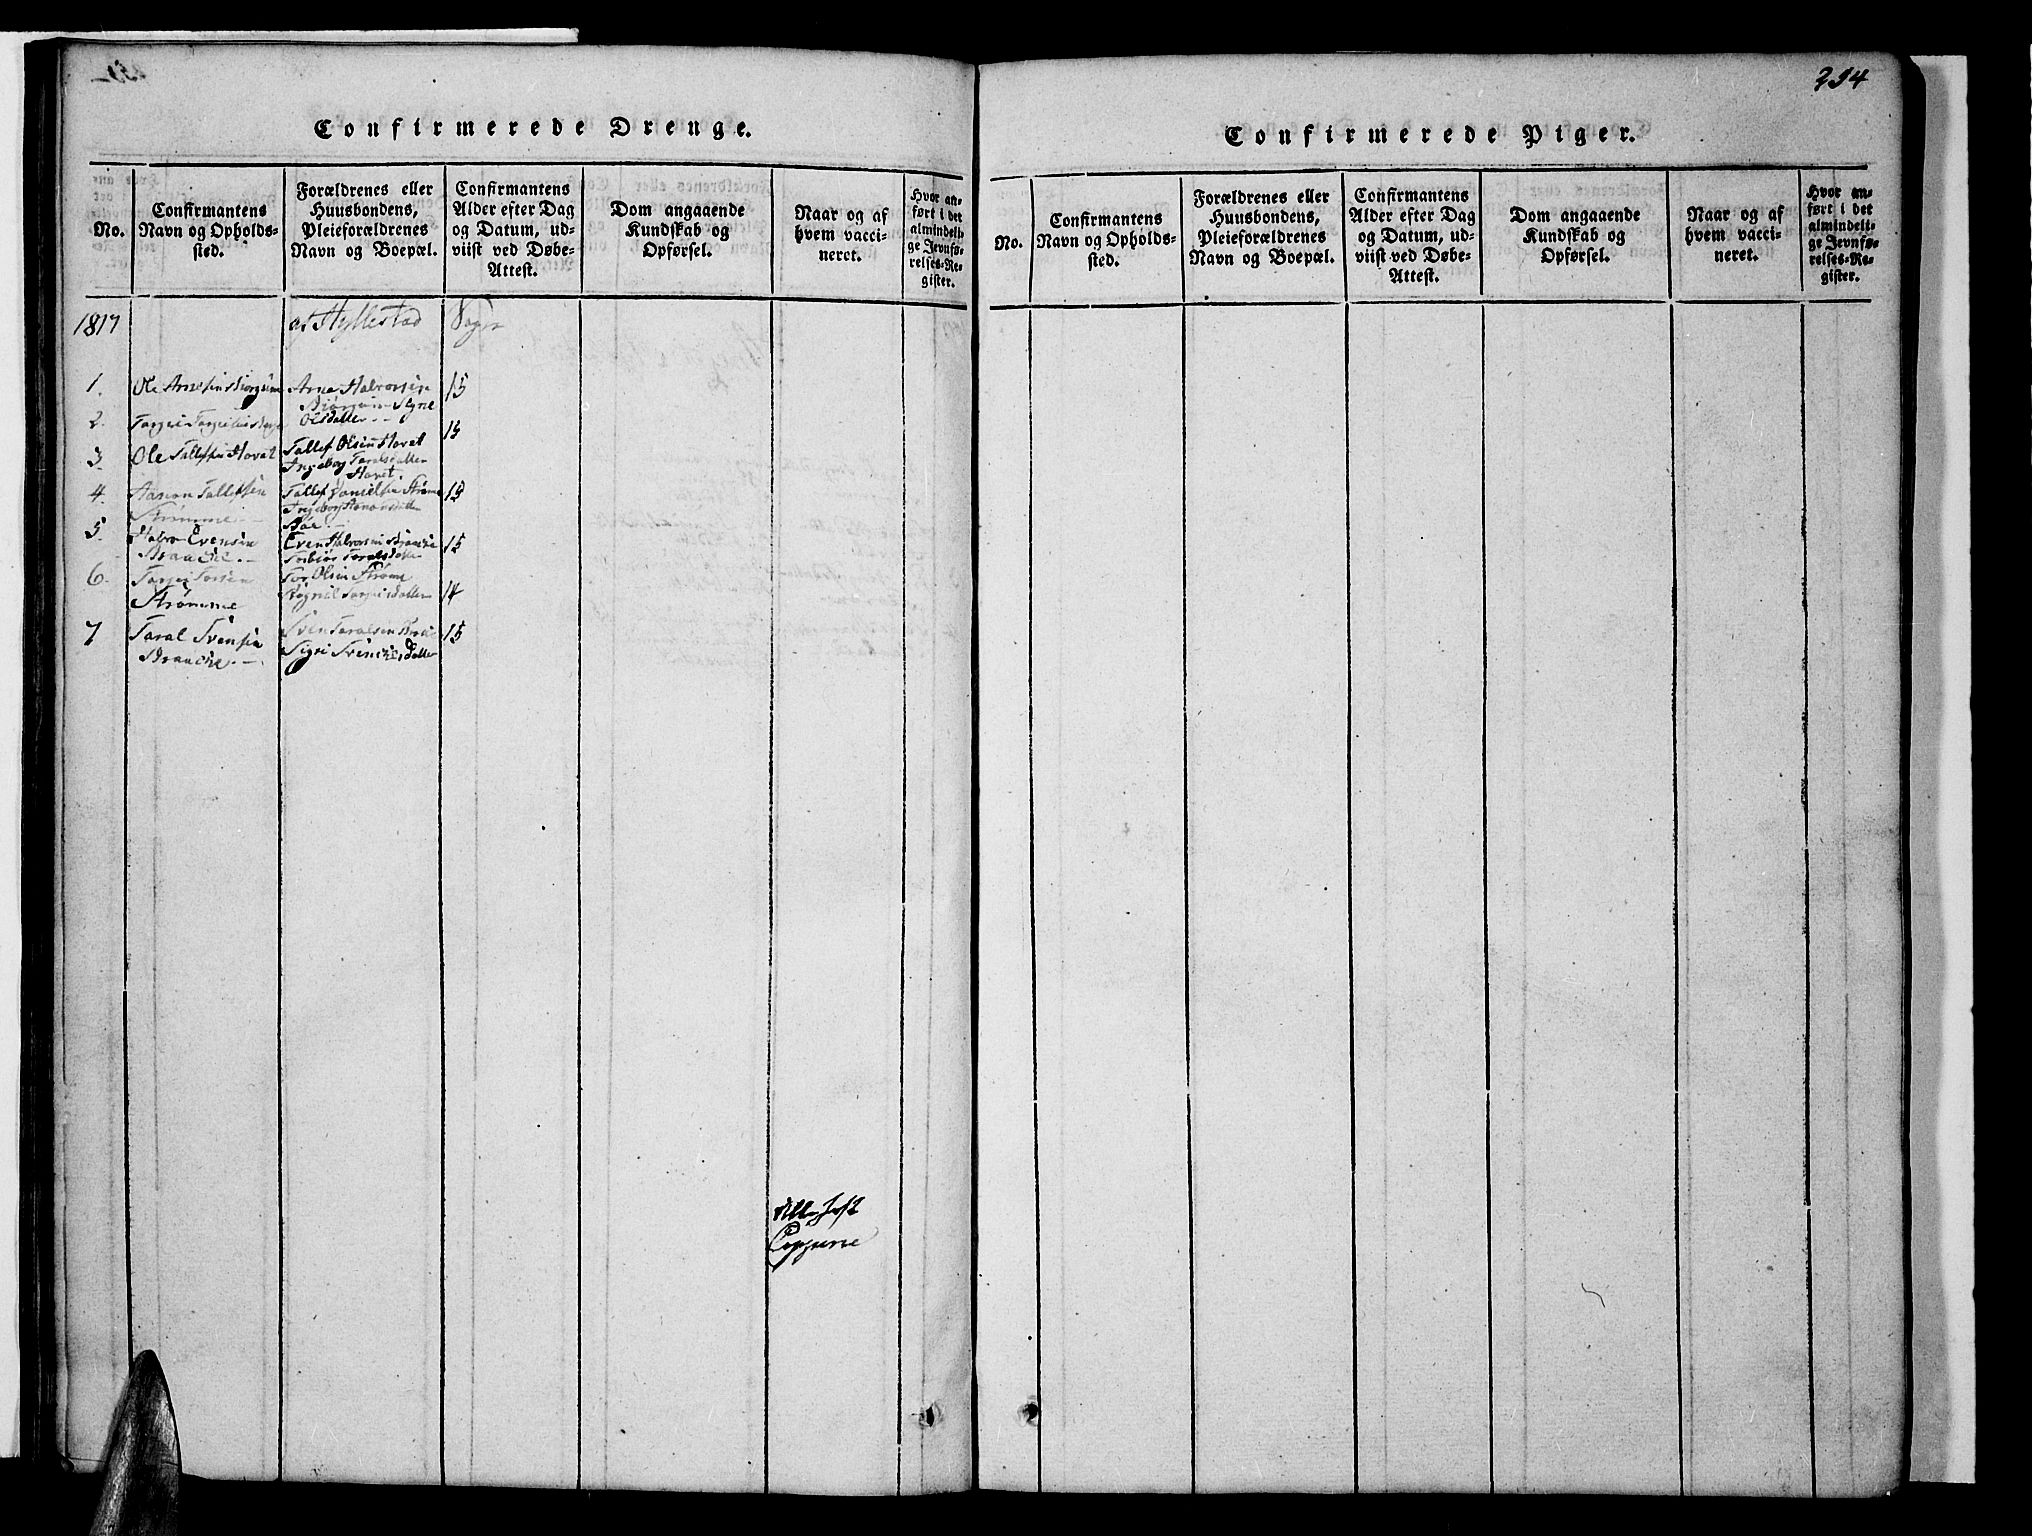 294
Confirmerede Drenge.
No.
Confirmantens
Navn og Opholds-
sted.
Forældrenes eller
Huusbondens,
Pleieforældrenes
Navn og Boepæl.
Confirmantens
Alder efter Dag
og Datum, ud-
viist ved Døbe-
Attest.
Dom angaaende
Kundskab og
Opførsel.
Naar og af
hvem vacci-
neret.
Hvor an-
ført i det
almindeli-
ge Jevnfø-
relses-Re-
gister.
1817
af Hyllestad Sogn
1.
Ole Arnesen Biørgum
Arne Halvorsen
Biørgum Signe
Olsdatter
15
2.
Torgei
15
3
Ole Tallefsen Hovet
Tallef Olsen Hovet
Ingebor Taralsdatter
Hovet
4.
Aanon Tallefsen
Strømme
Tallef Danielsen Strøme
Ingebor Aanonsdatter
15
5.
Halvor Evensen
Braache
Even Halvorsen Braache
Torbiør Taralsdatter
15
6.
Torgei Torsen
Strømme
Tor Olsen Strøme
Torgeisdatter
14
7
Taral Svensen
Braache
Sven Taralsen
Sigri
15
Copperne
Confirmerede Piger.
No.
Confirmantens
Navn og Opholds-
sted.
Forældrenes eller
Huusbondens,
Pleieforældrenes
Navn og Boepæl.
Confirmantens
Alder efter Dag
og Datum, ud-
viist ved Døbe-
Attest.
Dom angaaende
Kundskab og
Opførsel.
Naar og af
hvem vacci-
neret.
Hvor an-
ført i det
almindeli-
ge Jevnfø-
relses-Re-
gister.